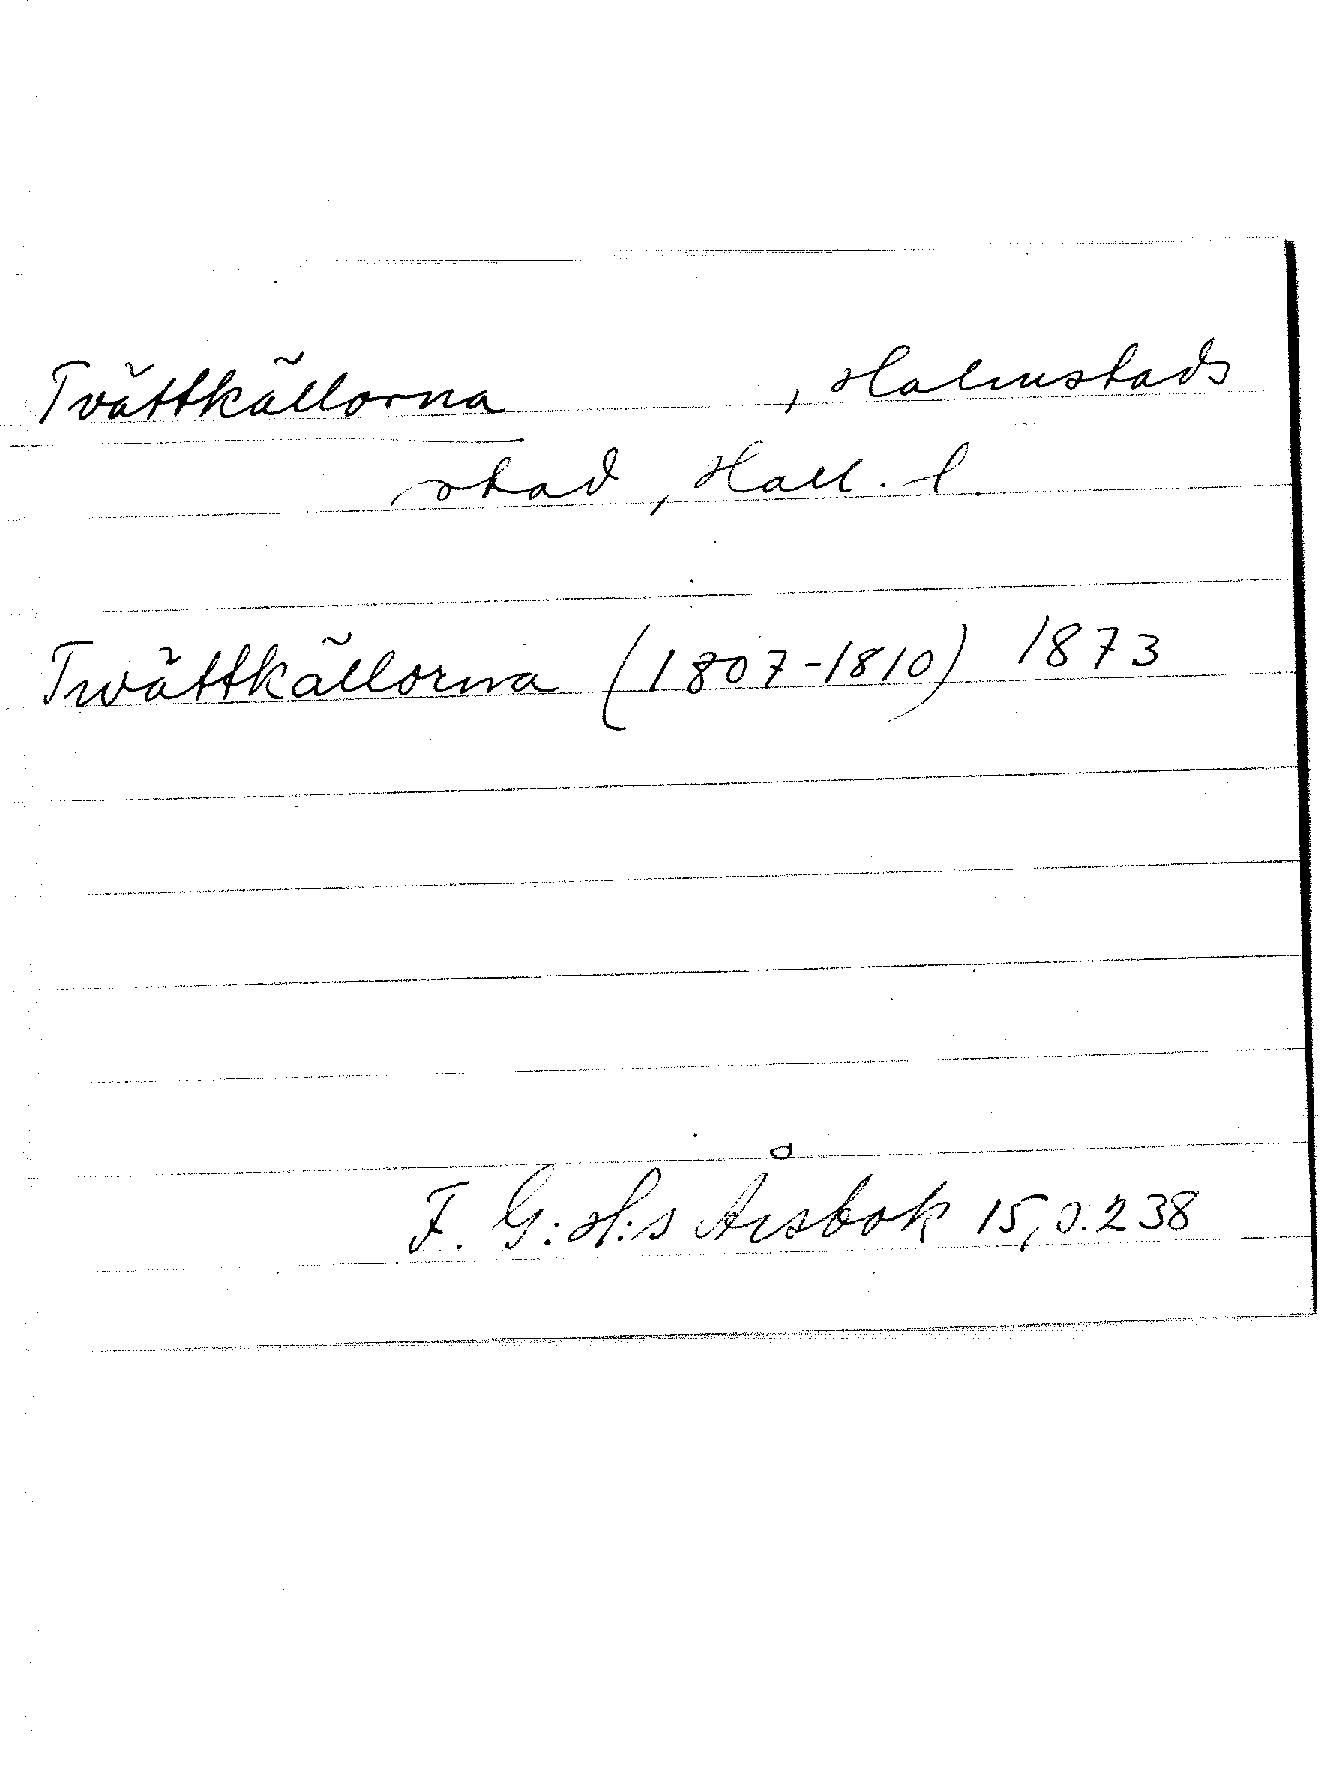 Tvättkällorna , Halmstads
stad, Hall. l.
Twättkällorna (1807-1810) 1873
F. G:H:s Årsbok 15, s. 238